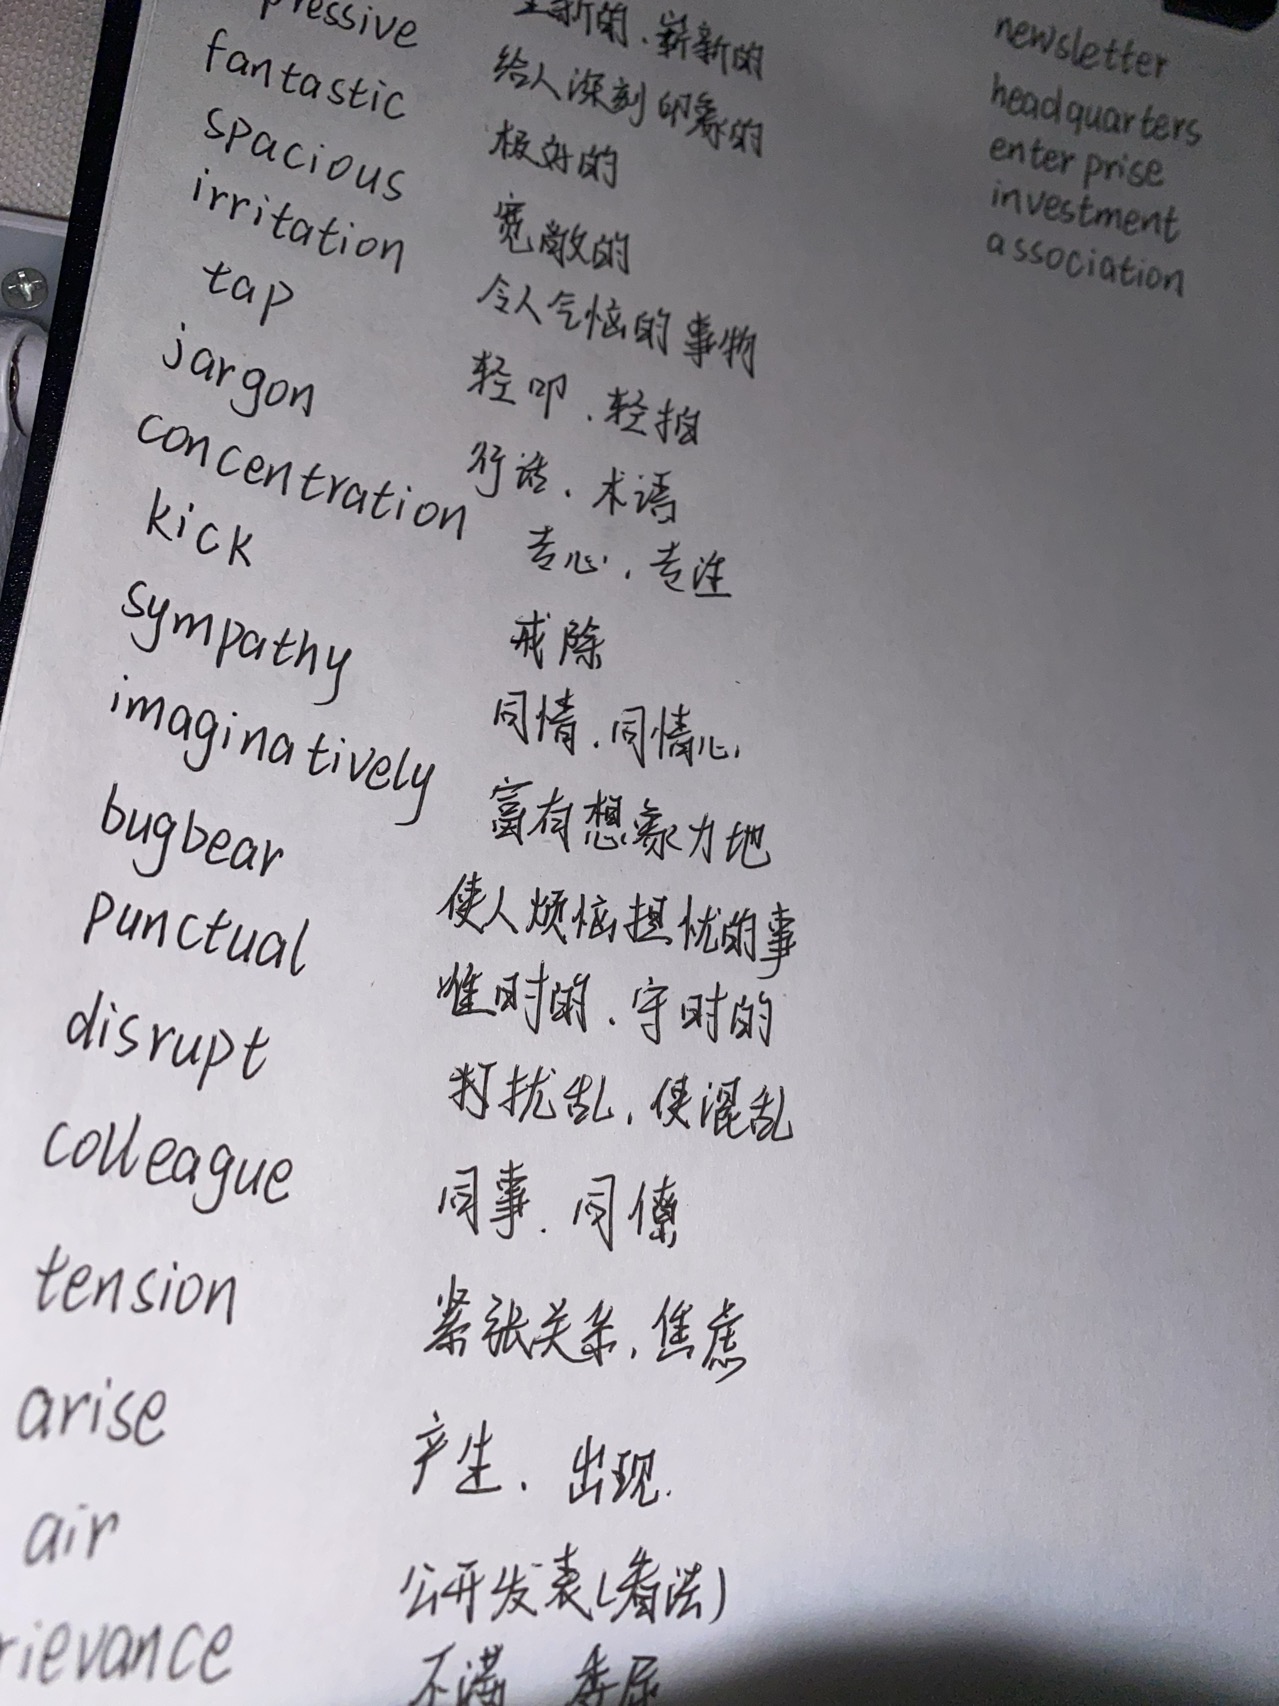 pressive 全新的、崭新的
fantastic 给人深刻印象的
spacious 极好的
irritation 宽敞的
tap 令人气恼的事物
jargon 轻叩、轻拍
concentration 行话、术语
kick 专心、专注
sympathy 戒除
imaginatively 同情、同情心
bugbear 富有想象力地
punctual 使人烦恼担忧的事
disrupt 准时的、守时的
colleague 打扰乱、使混乱
tension 同事、同僚
arise 紧张关系、焦虑
air 产生、出现
rievance 公开发表(看法)
不满 委屈
newsletter
headquarters
enterprise
investment
association